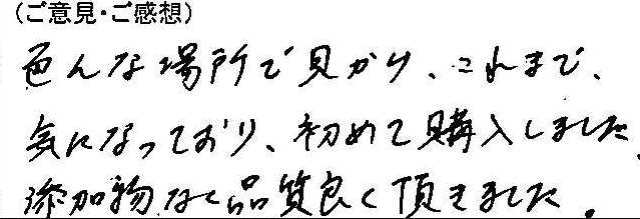 (ご意見・ご感想)
色んな場所で見かけ、これまで、
気になっており、初めて購入しました。
添加物なく品質良く頂きました。